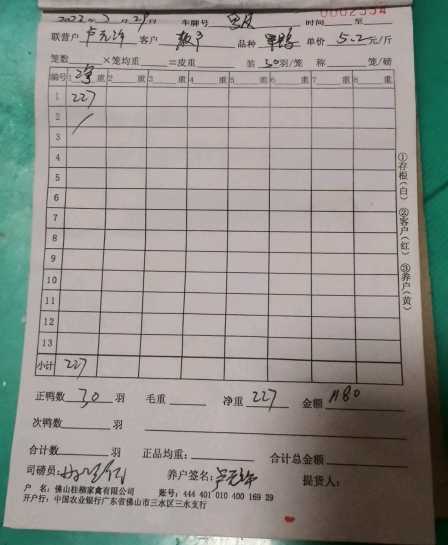 2022年 月29日 车牌号 时间 至
0002334
联营户 卢允许 客户 散户 品种 单价 5.2 元/斤
笼数 ×笼均重 =皮重 装 30 羽/笼 称 笼/磅
编号 1 重 2 重 3 重 4 重 5 重 6 重 7 重 8 重
1 227
2
3
4
5
6
7
8
9
10
11
12
13
小计 227
正鸭数 30 羽 毛重 净重 227 金额 1180
次鸭数
合计数 羽 正品均重: 合计总金额
司磅员: 养户签名: 卢允许 提货人:
户 名: 佛山桂柳家禽有限公司 账号: 444 401 010 400 169 29
开户行: 中国农业银行广东省佛山市三水区三水支行
①存根(白) ②客户(红) ③养户(黄)